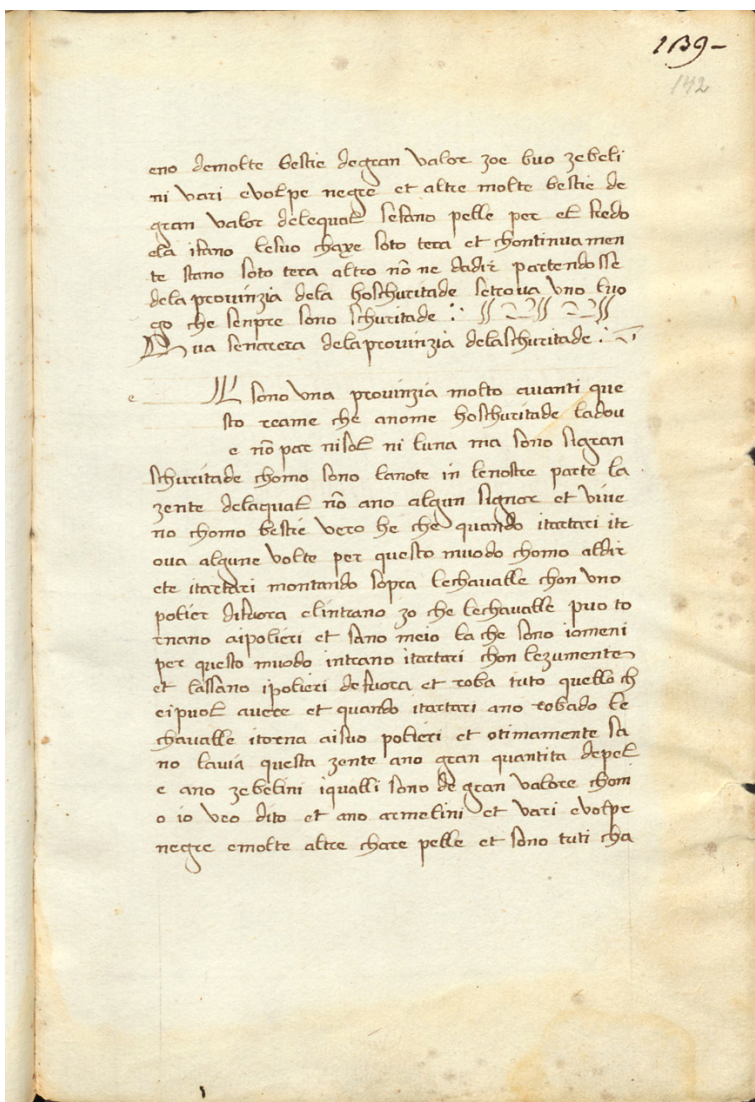 139-
142
eno demolte bestie degran valor zoe buo zebeli
ni vari evolpe negre et altre molte bestie de
gran valor delequal sefano pelle per el fredo
ela istano lesuo chaxe soto tera et chontinuamen
te stano soto tera altro nõ ne dadir partendosse
dela provinzia dela hoschuritade setrova uno luo
go che senpre sono schuritade
Qua senarera delaprovinzia delaschuritade
e
El sono una provinzia molto avanti que
sto reame che anome hoschuritade ladov
e nõ par nisol ni luna ma sono sigran
schuritade chomo sono lanote in lenostre parte la
zente delaqual nõ ano algun signor et vive
no chomo bestie vero he che quando itartari itr
ova algune volte per questo muodo chomo aldir
ete itartari montando sopra lechavalle chon uno
polier difuora elintrano zo che lechavalle puo to
rnano aipolieri et sano meio la che sono iomeni
per questo muodo intrano itartari chon lezumente
et lassano ipolieri defuora et roba tuto quello ch
eipuol avere et quando itartari ano robado le
chavalle itorna aisuo polieri et otimamente sa
no lavia questa zente ano gran quantita depel
e ano zebelini iqualli sono de gran valore chom
o io veo dito et ano armelini et vari evolpe
negre emolte altre chare pelle et sono tuti cha